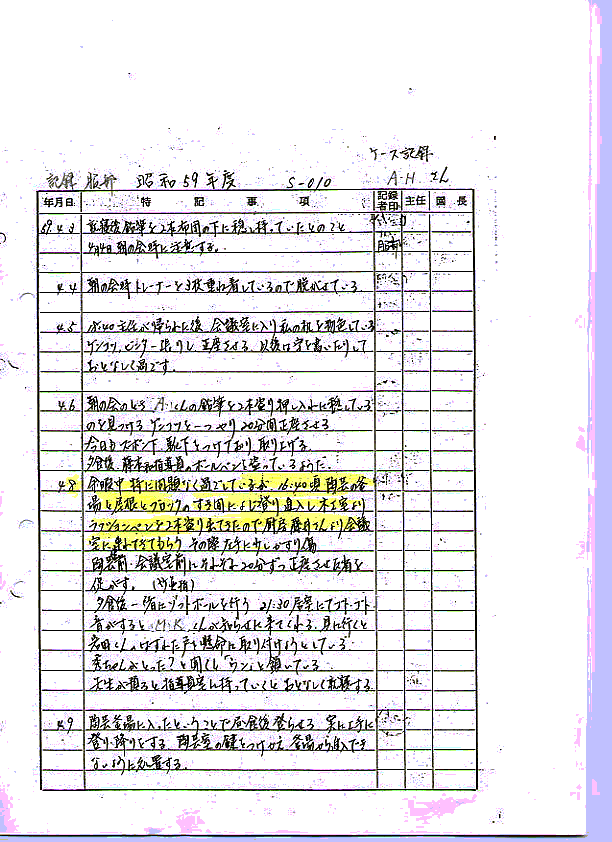 ケース記録
記録 服部 昭和59年度 S-010 A.H.さん
年月日 特記事項 記録者印 主任 園長
59.4.3 就寝後鉛筆を2本布団の下に隠し持っていたとのこと
4月4日朝の会時に注意する。
4.4 朝の会時トレーナーを3枚重ね着しているので脱がせている
4.5 主任が帰られた後、会議室に入り私の机を物色している
ゲンコツ、ビンタ一張りし正座させる 以後は字を書いたりして
おとなしく過ごす。
4.6 朝の会のとき A.くんの鉛筆を2本盗り押し入れに隠している
のを見つける ゲンコツを一つやり20分間正座させる
今日もズボン下、靴下をつけており取り上げる
夕食後、指導員のボールペンを盗っているようだ。
4.8 余暇中 特に問題なく過ごしているが、16:40頃 陶芸の釜
場と屋根とブロックのすき間によじ登り進入し木工室より
ラワションペンを2本盗り出てきたので厨房 さんより会議
室に連れてきてもらう その際左手に少しかすり傷
陶芸前・会議室前にそれぞれ20分ずつ正座させ反省を
促がす。
夕食後一緒にソフトボールを行う 21:30居室にてゴトゴト
音がすると M.K.くんが知らせに来てくれる、見に行くと
くんのはずれた戸を懸命に取り付けようとしている
秀ちゃんがとった?と聞くと「ウン」と頷いている
先生が預ると指導員室に持っていくとおとなしく就寝する
4.9 陶芸釜場に入ったということで昼食後登らせる 実に上手に
登り降りをする 陶芸室の鍵をつけかえ 釜場から進入でき
ないように処置する。